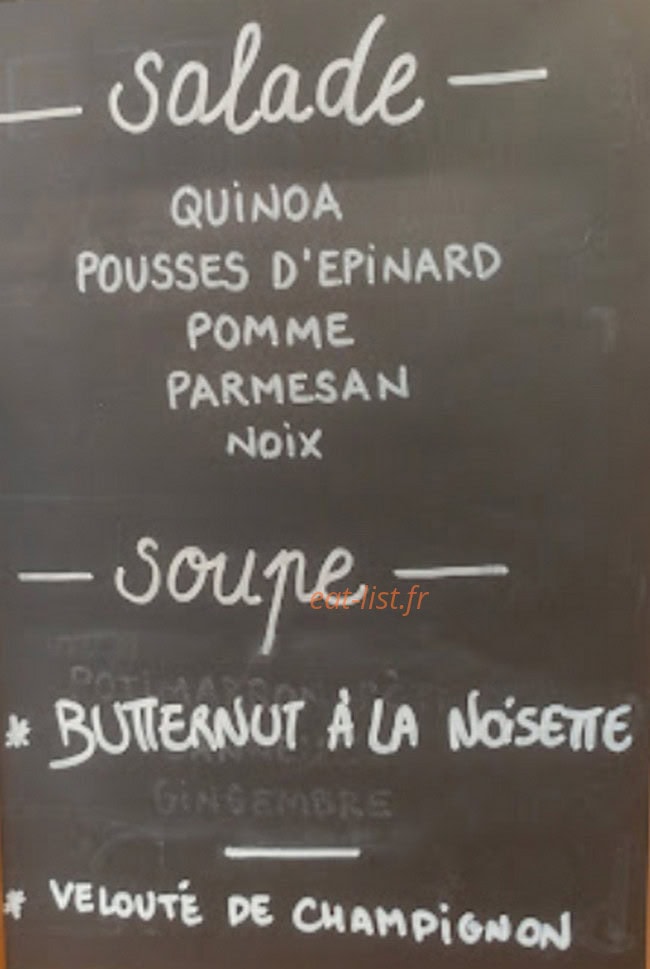 salade
QUINOA
POUSSES D'EPINARD
POMME
PARMESAN
NOIX
soupe
eat-list.fr
POTIMARRON
* BUTTERNUT À LA NOISETTE
GINGEMBRE
* VELOUTÉ DE CHAMPIGNON